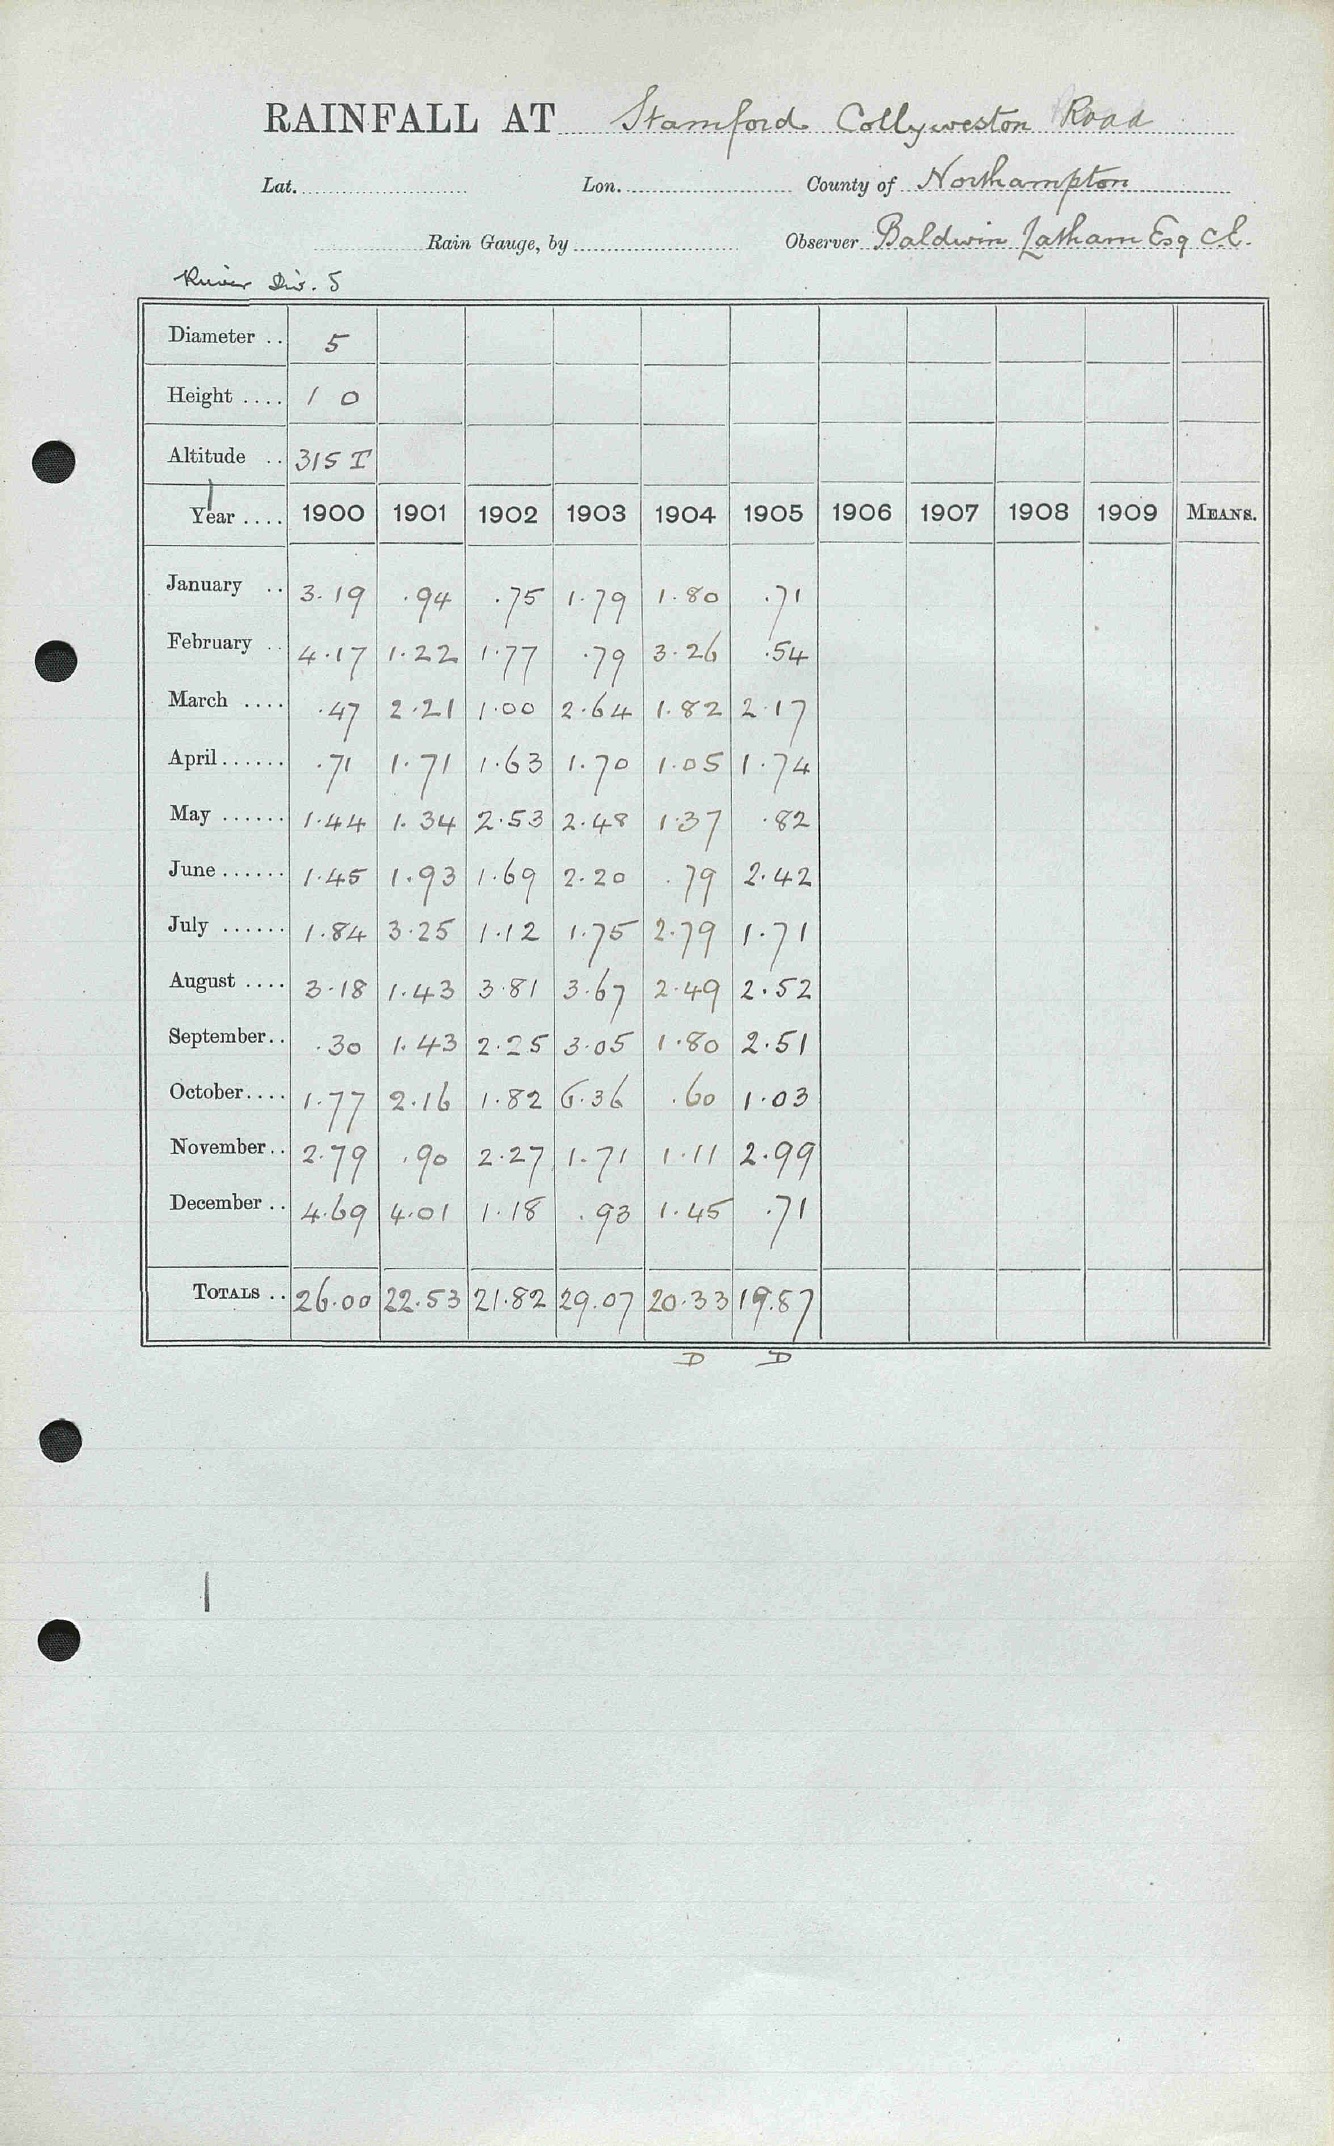 RAINFALL AT Stamford Collyweston Road
Lat. Lon. County of Northampton
Rain Gauge, by Observer Baldwin Latham Esq C.E.
River Div. 5
Diameter .. 5
Height .... 1 0
Altitude .. 315 T
Year .... 1900 1901 1902 1903 1904 1905 1906 1907 1908 1909 MEANS.
January .. 3.19 .94 .75 1.79 1.80 .71
February .. 4.17 1.22 1.77 .79 3.26 .54
March .... .47 2.21 1.00 2.64 1.82 2.17
April ...... .71 1.71 1.63 1.70 1.05 1.74
May ...... 1.44 1.34 2.53 2.48 1.37 .82
June ...... 1.45 1.93 1.69 2.20 .79 2.42
July ...... 1.84 3.25 1.12 1.75 2.79 1.71
August .... 3.18 1.43 3.81 3.67 2.49 2.52
September.. .30 1.43 2.25 3.05 1.80 2.51
October.... 1.77 2.16 1.82 6.36 .60 1.03
November.. 2.79 .90 2.27 1.71 1.11 2.99
December .. 4.69 4.01 1.18 .93 1.45 .71
TOTALS .. 26.00 22.53 21.82 29.07 20.33 19.87
D D